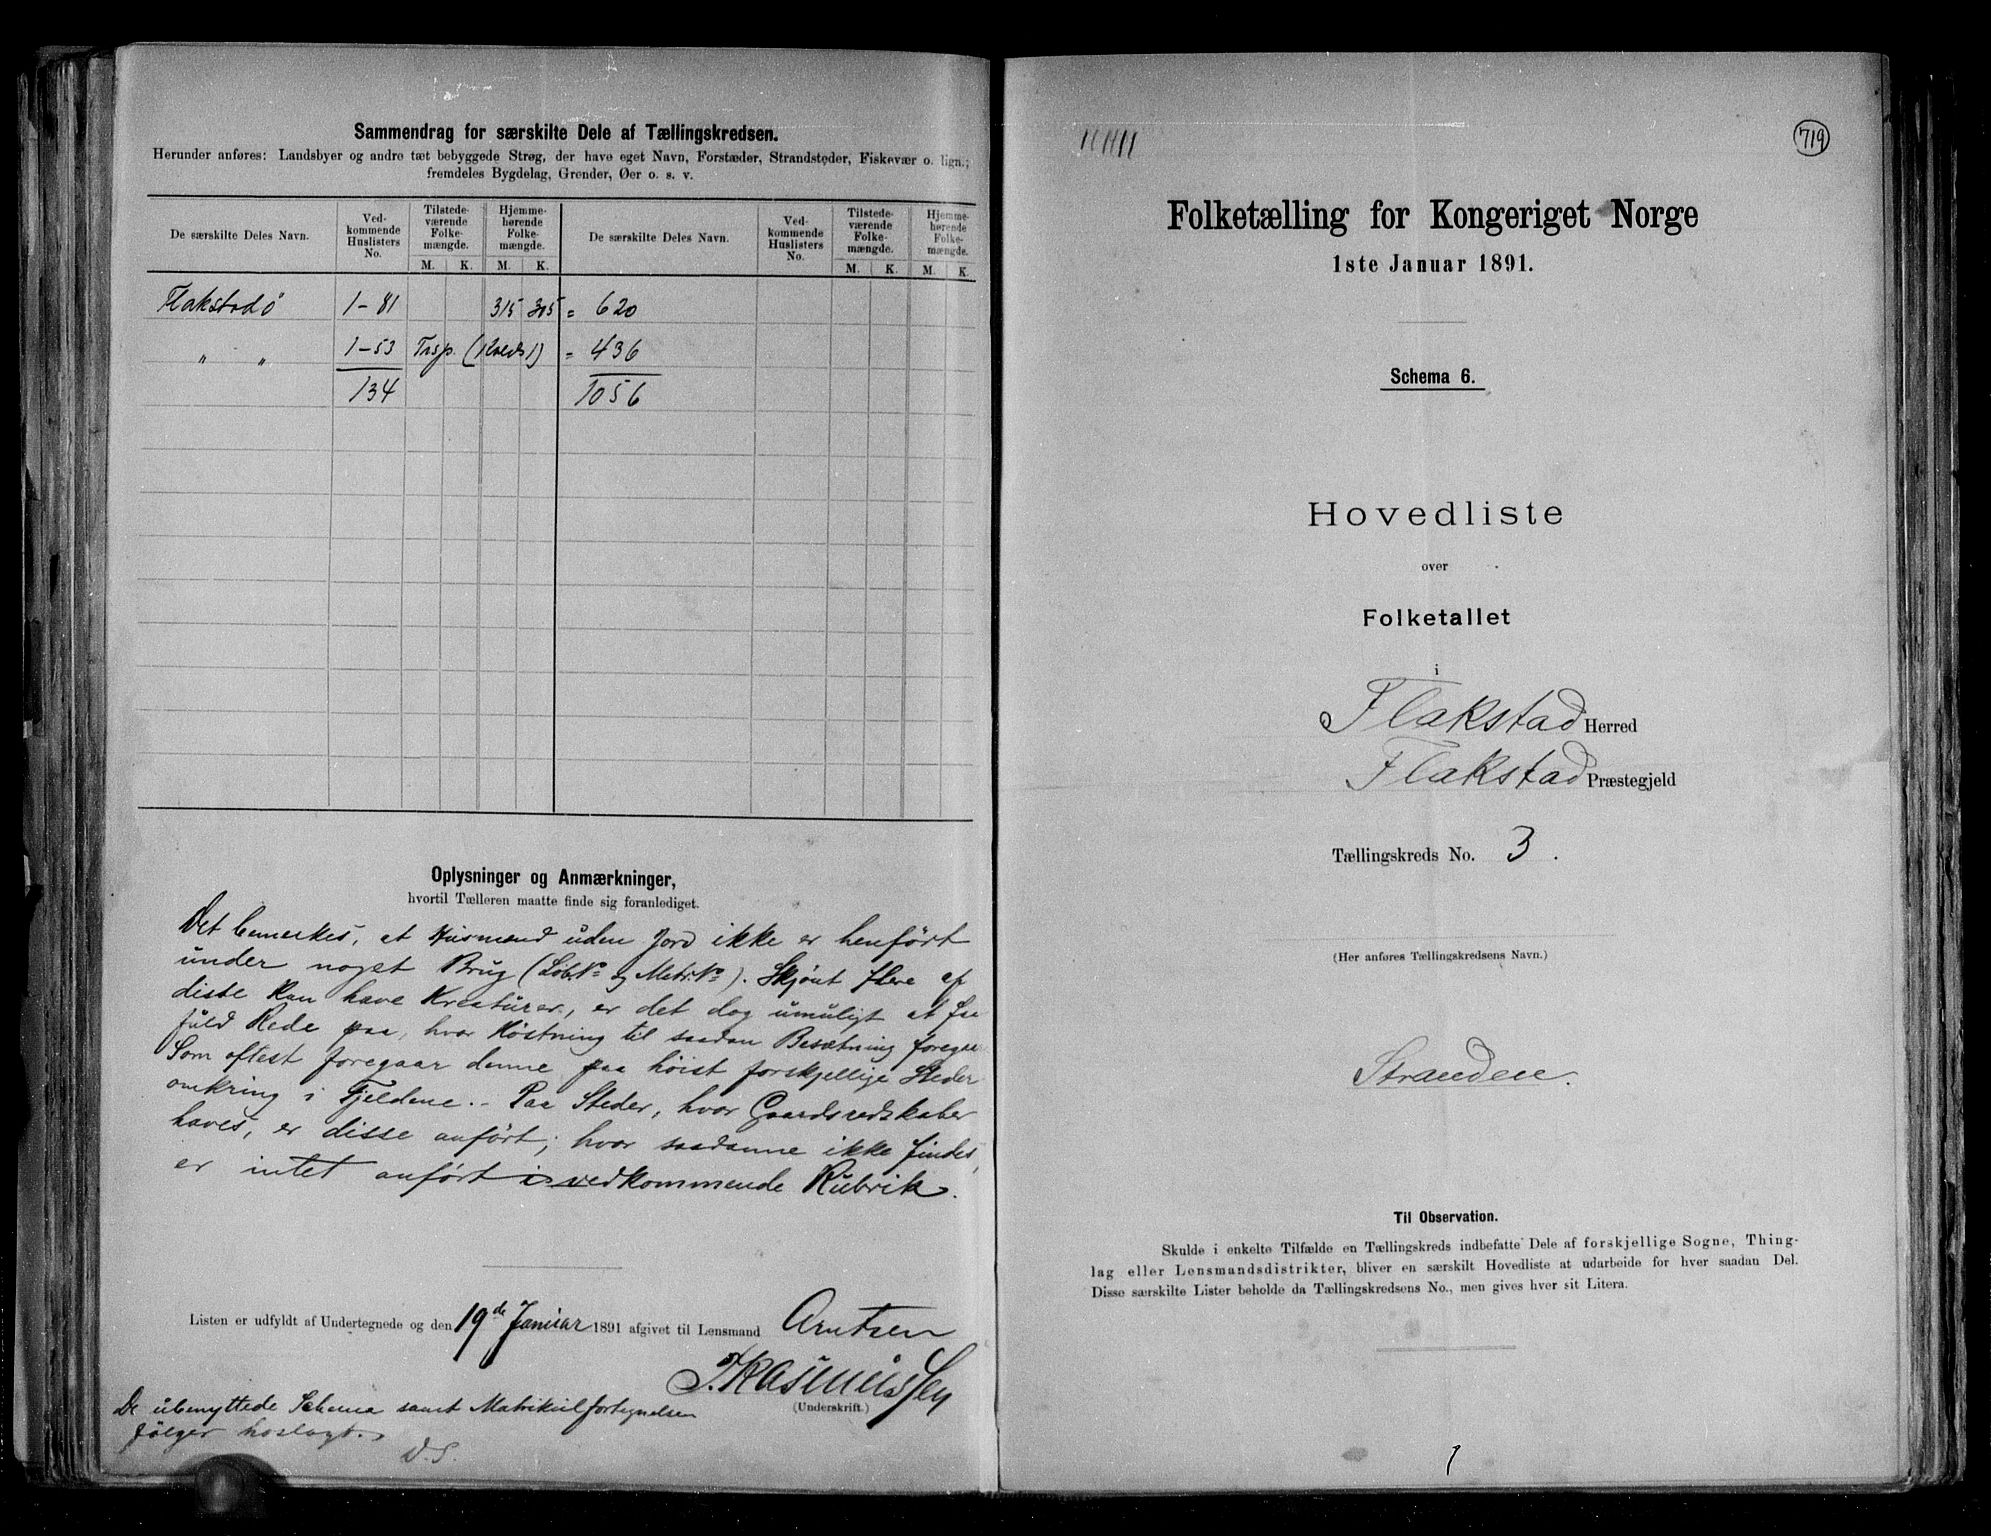 Sammendrag for særskilte Dele af Tællingskredsen.
Herunder anføres: Landsbyer og andre tæt bebyggede Strøg, der have eget Navn, Forstæder, Strandsteder, Fiskevær o. lign.;
fremdeles Bygdelag, Grender, Øer o. s. v.
De særskilte Deles Navn. Vedkommende Huslisters No. Tilstedeværende Folkemængde. M. K. Hjemmehørende Folkemængde. M. K. De særskilte Deles Navn. Vedkommende Huslisters No. Tilstedeværende Folkemængde. M. K. Hjemmehørende Folkemængde. M. K.
Flakstadø 1-81 315 305 = 620
" " 1-53 Trsp. (Kreds 1) = 436
134 1056
Oplysninger og Anmærkninger,
hvortil Tælleren maatte finde sig foranlediget.
Det bemerkes, at Husmænd uden Jord ikke er henført
under noget Brug (Løb.No og Matr.No). Skjønt flere af
disse kan have Kreaturer, er det dog umuligt at faa
fuld Rede paa, hvor Høstning til saadan Besætning foregaa
Som oftest foregaar denne paa høist forskjellige Steder
omkring i Fjeldene. - Paa Steder, hvor Gaardsredskaber
haves, er disse anført; hvor saadanne ikke findes,
er intet anført i vedkommende Rubrik.
Listen er udfyldt af Undertegnede og den 19de Januar 1891 afgivet til Lensmand Arntsen
J. Rasmussen
(Underskrift.)
De ubenyttede Schema samt Matrikulfortegnelsen
følger hoslagt.
D.S.
719
Folketælling for Kongeriget Norge
1ste Januar 1891.
Schema 6.
Hovedliste
over
Folketallet
i
Flakstad Herred
Flakstad Præstegjeld
Tællingskreds No. 3.
(Her anføres Tællingskredsens Navn.)
Stranden.
Til Observation.
Skulde i enkelte Tilfælde en Tællingskreds indbefatte Dele af forskjellige Sogne, Thing-
lag eller Lensmandsdistrikter, bliver en særskilt Hovedliste at udarbeide for hver saadan Del.
Disse særskilte Lister beholde da Tællingskredsens No., men gives hver sit Litera.